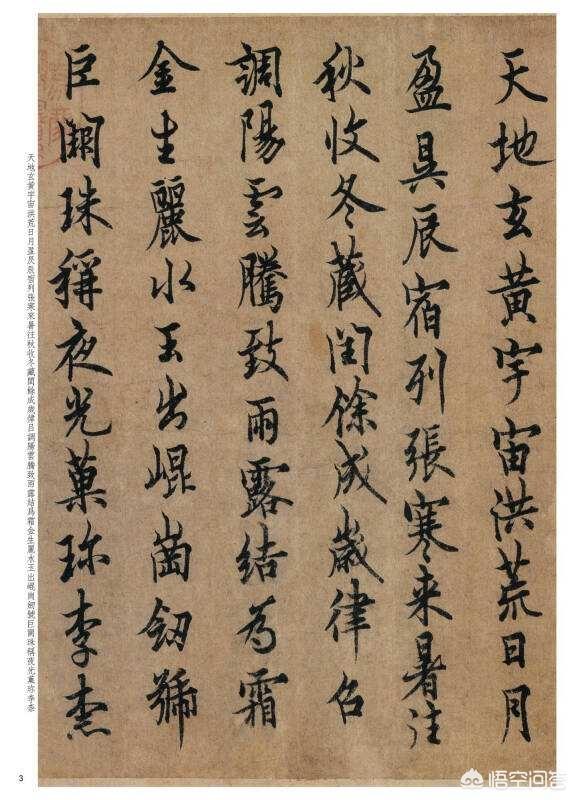 天地玄黃宇宙洪荒日月
盈昃辰宿列張寒来暑往
秋收冬藏閏餘成歲律呂
調陽雲騰致雨露結為霜
金生麗水玉出崐崗劒號
巨闕珠稱夜光菓珍李柰
天地玄黃宇宙洪荒日月盈昃辰宿列張寒來暑往秋收冬藏閏餘成歲律呂調陽雲騰致雨露結爲霜金生麗水玉出崐崗劒號巨闕珠稱夜光菓珍李柰
3
悟空问答